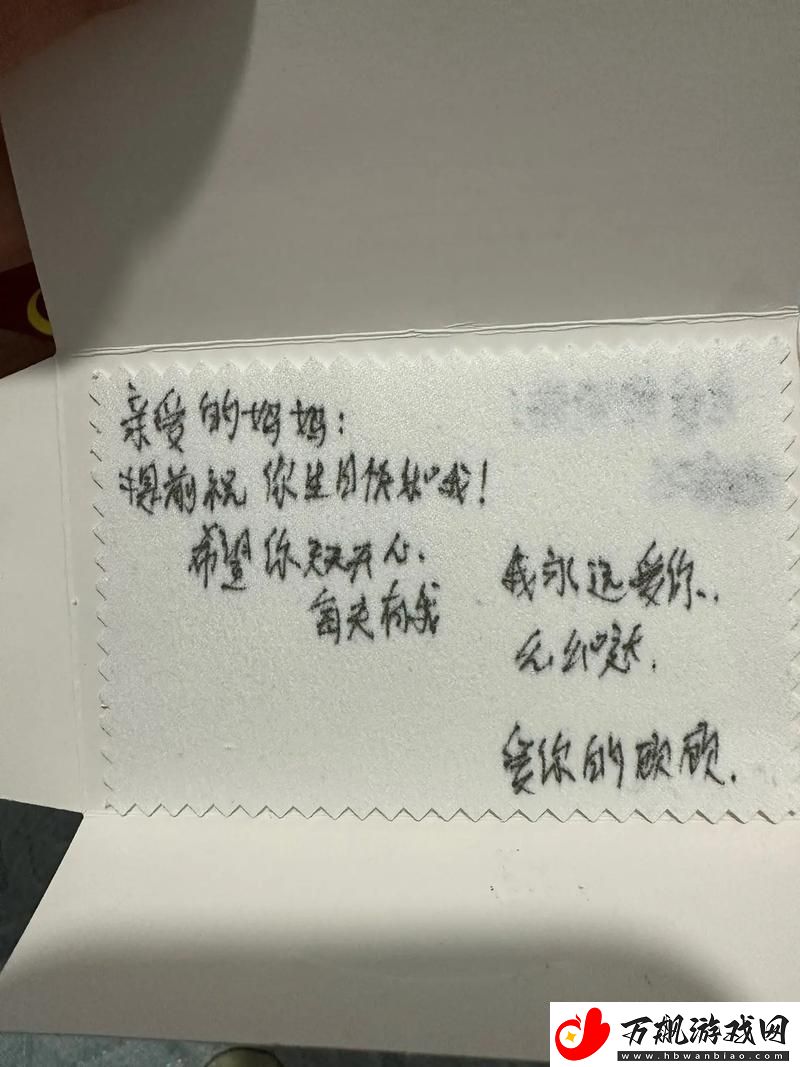 亲爱的妈妈：
提前祝你生日快乐哦！
希望你天天开心、
每天有我
我永远爱你、
无
爱你的顾顾.
万飙游戏网
www.hbwanbiao.com